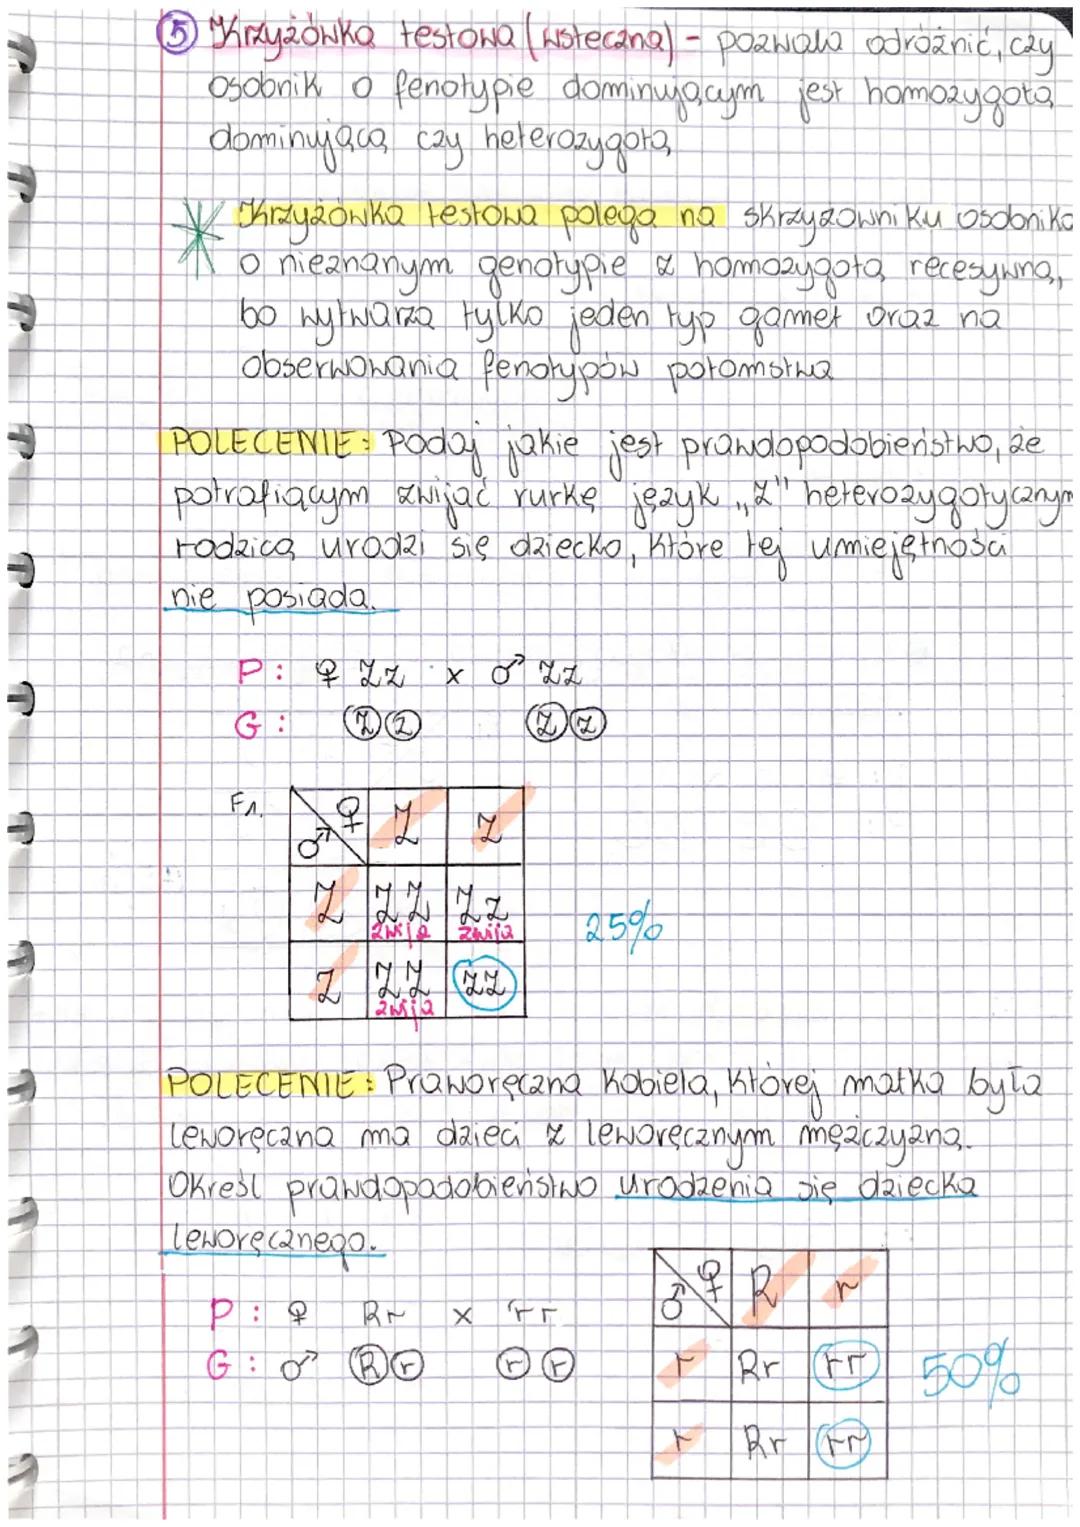 5 Krzyżówka testowa (wsteczna) - pozwala odróżnić, czy
osobnik o fenotypie dominującym jest homozygotą
dominującą czy heterozygotą
Krzyżówka testowa polega na skrzyżowniku osobnika
o nieznanym genotypie z homozygotą recesywną,
bo wytwarza tylko jeden typ gamet oraz na
obserwowania fenotypów potomstwa
POLECENIE: Podaj jakie jest prawdopodobieństwo, że
potrafiącym zwijać rurkę język „Z" heterozygotycznym
rodzicą urodzi się dziecko, które tej umiejętności
nie posiada.
P: ♀ Zz x ♂ Zz
G: Z z Z z
F1. ♂ ♀ Z z
Z ZZ Zz
zwija zwija
25%
z Zz zz
zwija
POLECENIE: Praworęczna kobieta, której matka była
leworęczna ma dzieci z leworęcznym mężczyzną.
Określ prawdopodobieństwo urodzenia się dziecka
leworęcznego.
P: ♀ Rr x rr
G: ♂ R r r r
♂ ♀ R r
r Rr rr
50%
r Rr rr